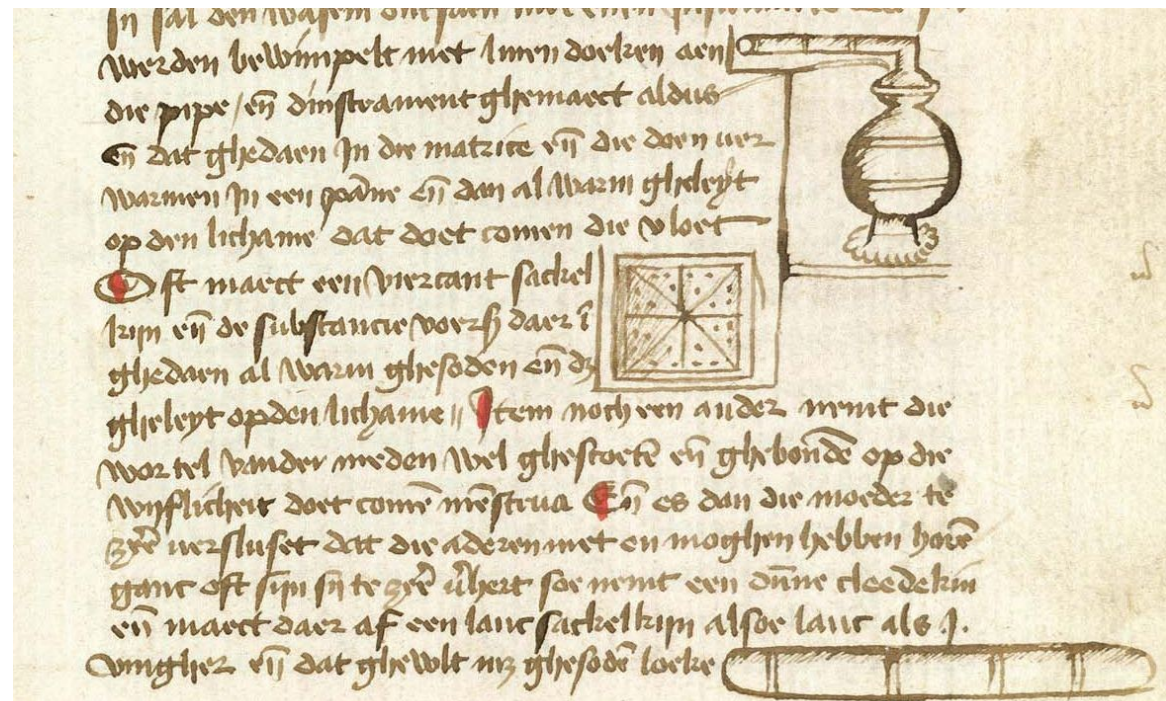 In sal den wasem ontfaen met enen
werden bewimpelt met linen doeken aen
die pipe / en̄ dinstrament ghemaect aldus
en̄ dat ghedaen In die matrice en̄ die doen ver
warmen In een pāne en̄ dan al warm gheleyt
op den lichame dat doet comen die vloet
Oft maect een viercant sackel
kijn en̄ de substancie voers daer ī
ghedaen al warm ghesoden en̄ dz
gheleyt opden lichame // Item noch een ander nemt die
wortel vander meden wel ghestoetē en̄ ghebondē op die
wijflicheit doet comē mēstrua En̄ es dan die moeder te
zeē versluset dat die aderen niet en moghen hebben horē
ganc oft sijn si te zeē v̄hert soe nemt een dūne cleedekin
en̄ maect daer af een lanc sackelkijn alsoe lanc als .j.
vingher en̄ dat ghevvlt mz ghesodē loeke